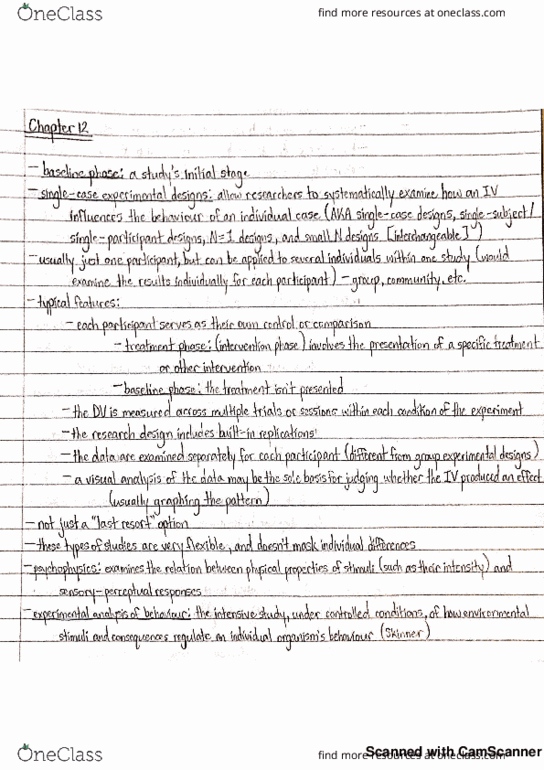 OneClass
find more resources at oneclass.com
Chapter 12
- baseline phase: a study's initial stage
- single-case experimental designs: allow researchers to systematically examine how an IV
influences the behaviour of an individual case (AKA single-case designs, single-subject/
single-participant designs, N=1 designs, and small N designs [interchangeable])
- usually just one participant, but can be applied to several individuals within one study (would
examine the results individually for each participant) - group, community, etc.
- typical features:
- each participant serves as their own control or comparison
- treatment phase: (intervention phase) involves the presentation of a specific treatment
or other intervention
- baseline phase: the treatment isn't presented
- the DV is measured across multiple trials or sessions within each condition of the experiment
- the research design includes built-in replications
- the data are examined separately for each participant (different from group experimental designs)
- a visual analysis of the data may be the sole basis for judging whether the IV produced an effect
(usually graphing the pattern)
- not just a "last resort" option
- these types of studies are very flexible, and doesn't mask individual differences
- psychophysics: examines the relation between physical properties of stimuli (such as their intensity) and
sensory-perceptual responses
- experimental analysis of behaviour: the intensive study, under controlled conditions, of how environmental
stimuli and consequences regulate an individual organism's behaviour (Skinner)
OneClass
find more resources at oneclass.com
Scanned with CamScanner